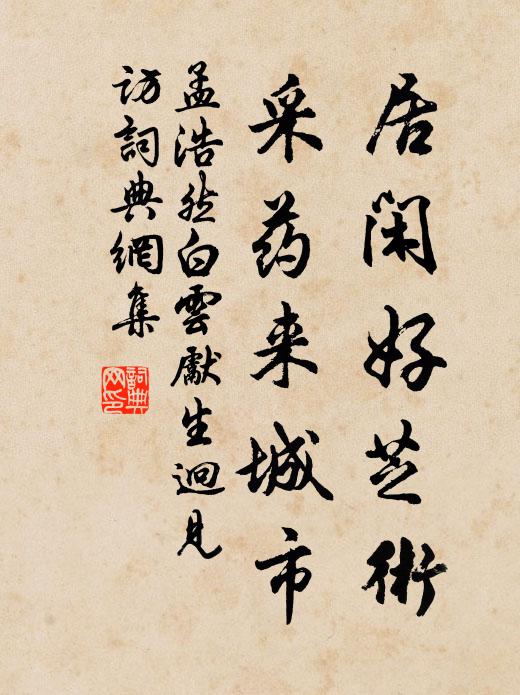 居闲好芝術
采药来城市
孟浩然白雲獻生迴見
訪詞典網集
詞典網印